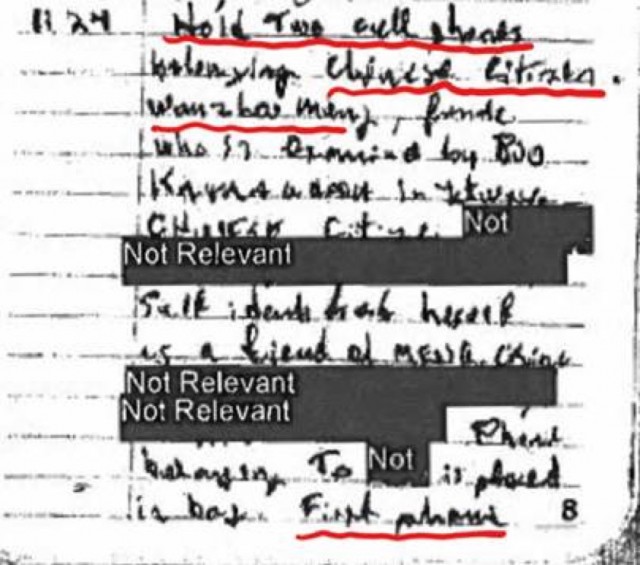 11.24 Hold Two cell phones
belonging Chinese Citizen.
Wanzhou Meng, female
who is Examined by BSO
in
Chinese Citizen Not
Not Relevant
Self identifies herself
is a friend of
Not Relevant
Not Relevant
Phone
belonging To Not is placed
in bag. First phone 8